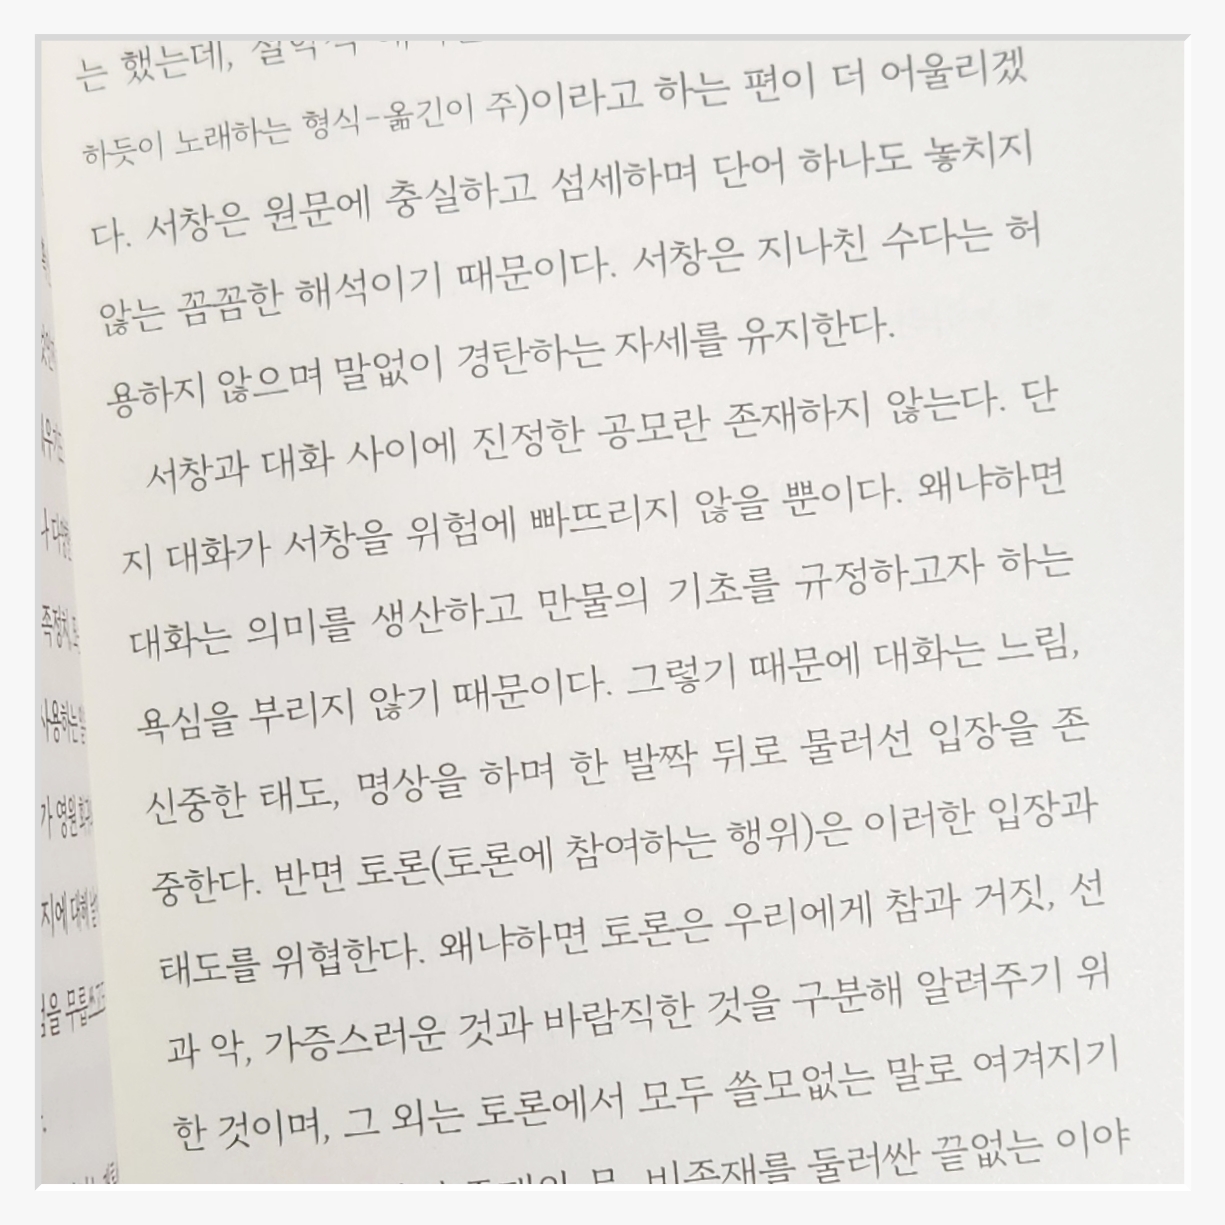 는 했는데,
하듯이 노래하는 형식-옮긴이 주)이라고 하는 편이 더 어울리겠
다. 서창은 원문에 충실하고 섬세하며 단어 하나도 놓치지
않는 꼼꼼한 해석이기 때문이다. 서창은 지나친 수다는 허
용하지 않으며 말없이 경탄하는 자세를 유지한다.
서창과 대화 사이에 진정한 공모란 존재하지 않는다. 단
지 대화가 서창을 위험에 빠뜨리지 않을 뿐이다. 왜냐하면
대화는 의미를 생산하고 만물의 기초를 규정하고자 하는
욕심을 부리지 않기 때문이다. 그렇기 때문에 대화는 느림,
신중한 태도, 명상을 하며 한 발짝 뒤로 물러선 입장을 존
중한다. 반면 토론(토론에 참여하는 행위)은 이러한 입장과
태도를 위협한다. 왜냐하면 토론은 우리에게 참과 거짓, 선
과 악, 가증스러운 것과 바람직한 것을 구분해 알려주기 위
한 것이며, 그 외는 토론에서 모두 쓸모없는 말로 여겨지기
비존재를 둘러싼 끝없는 이야